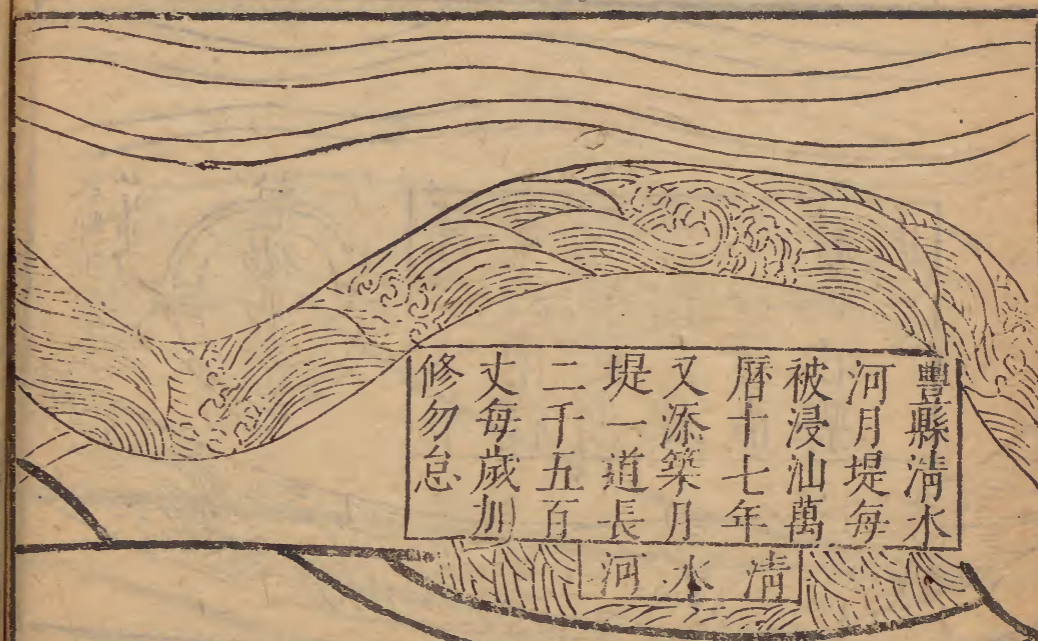 豐縣清水
河月堤每
被浸汕萬
曆十七年
又添築月
堤一道長
二千五百
丈每歲加
修勿怠
清水河